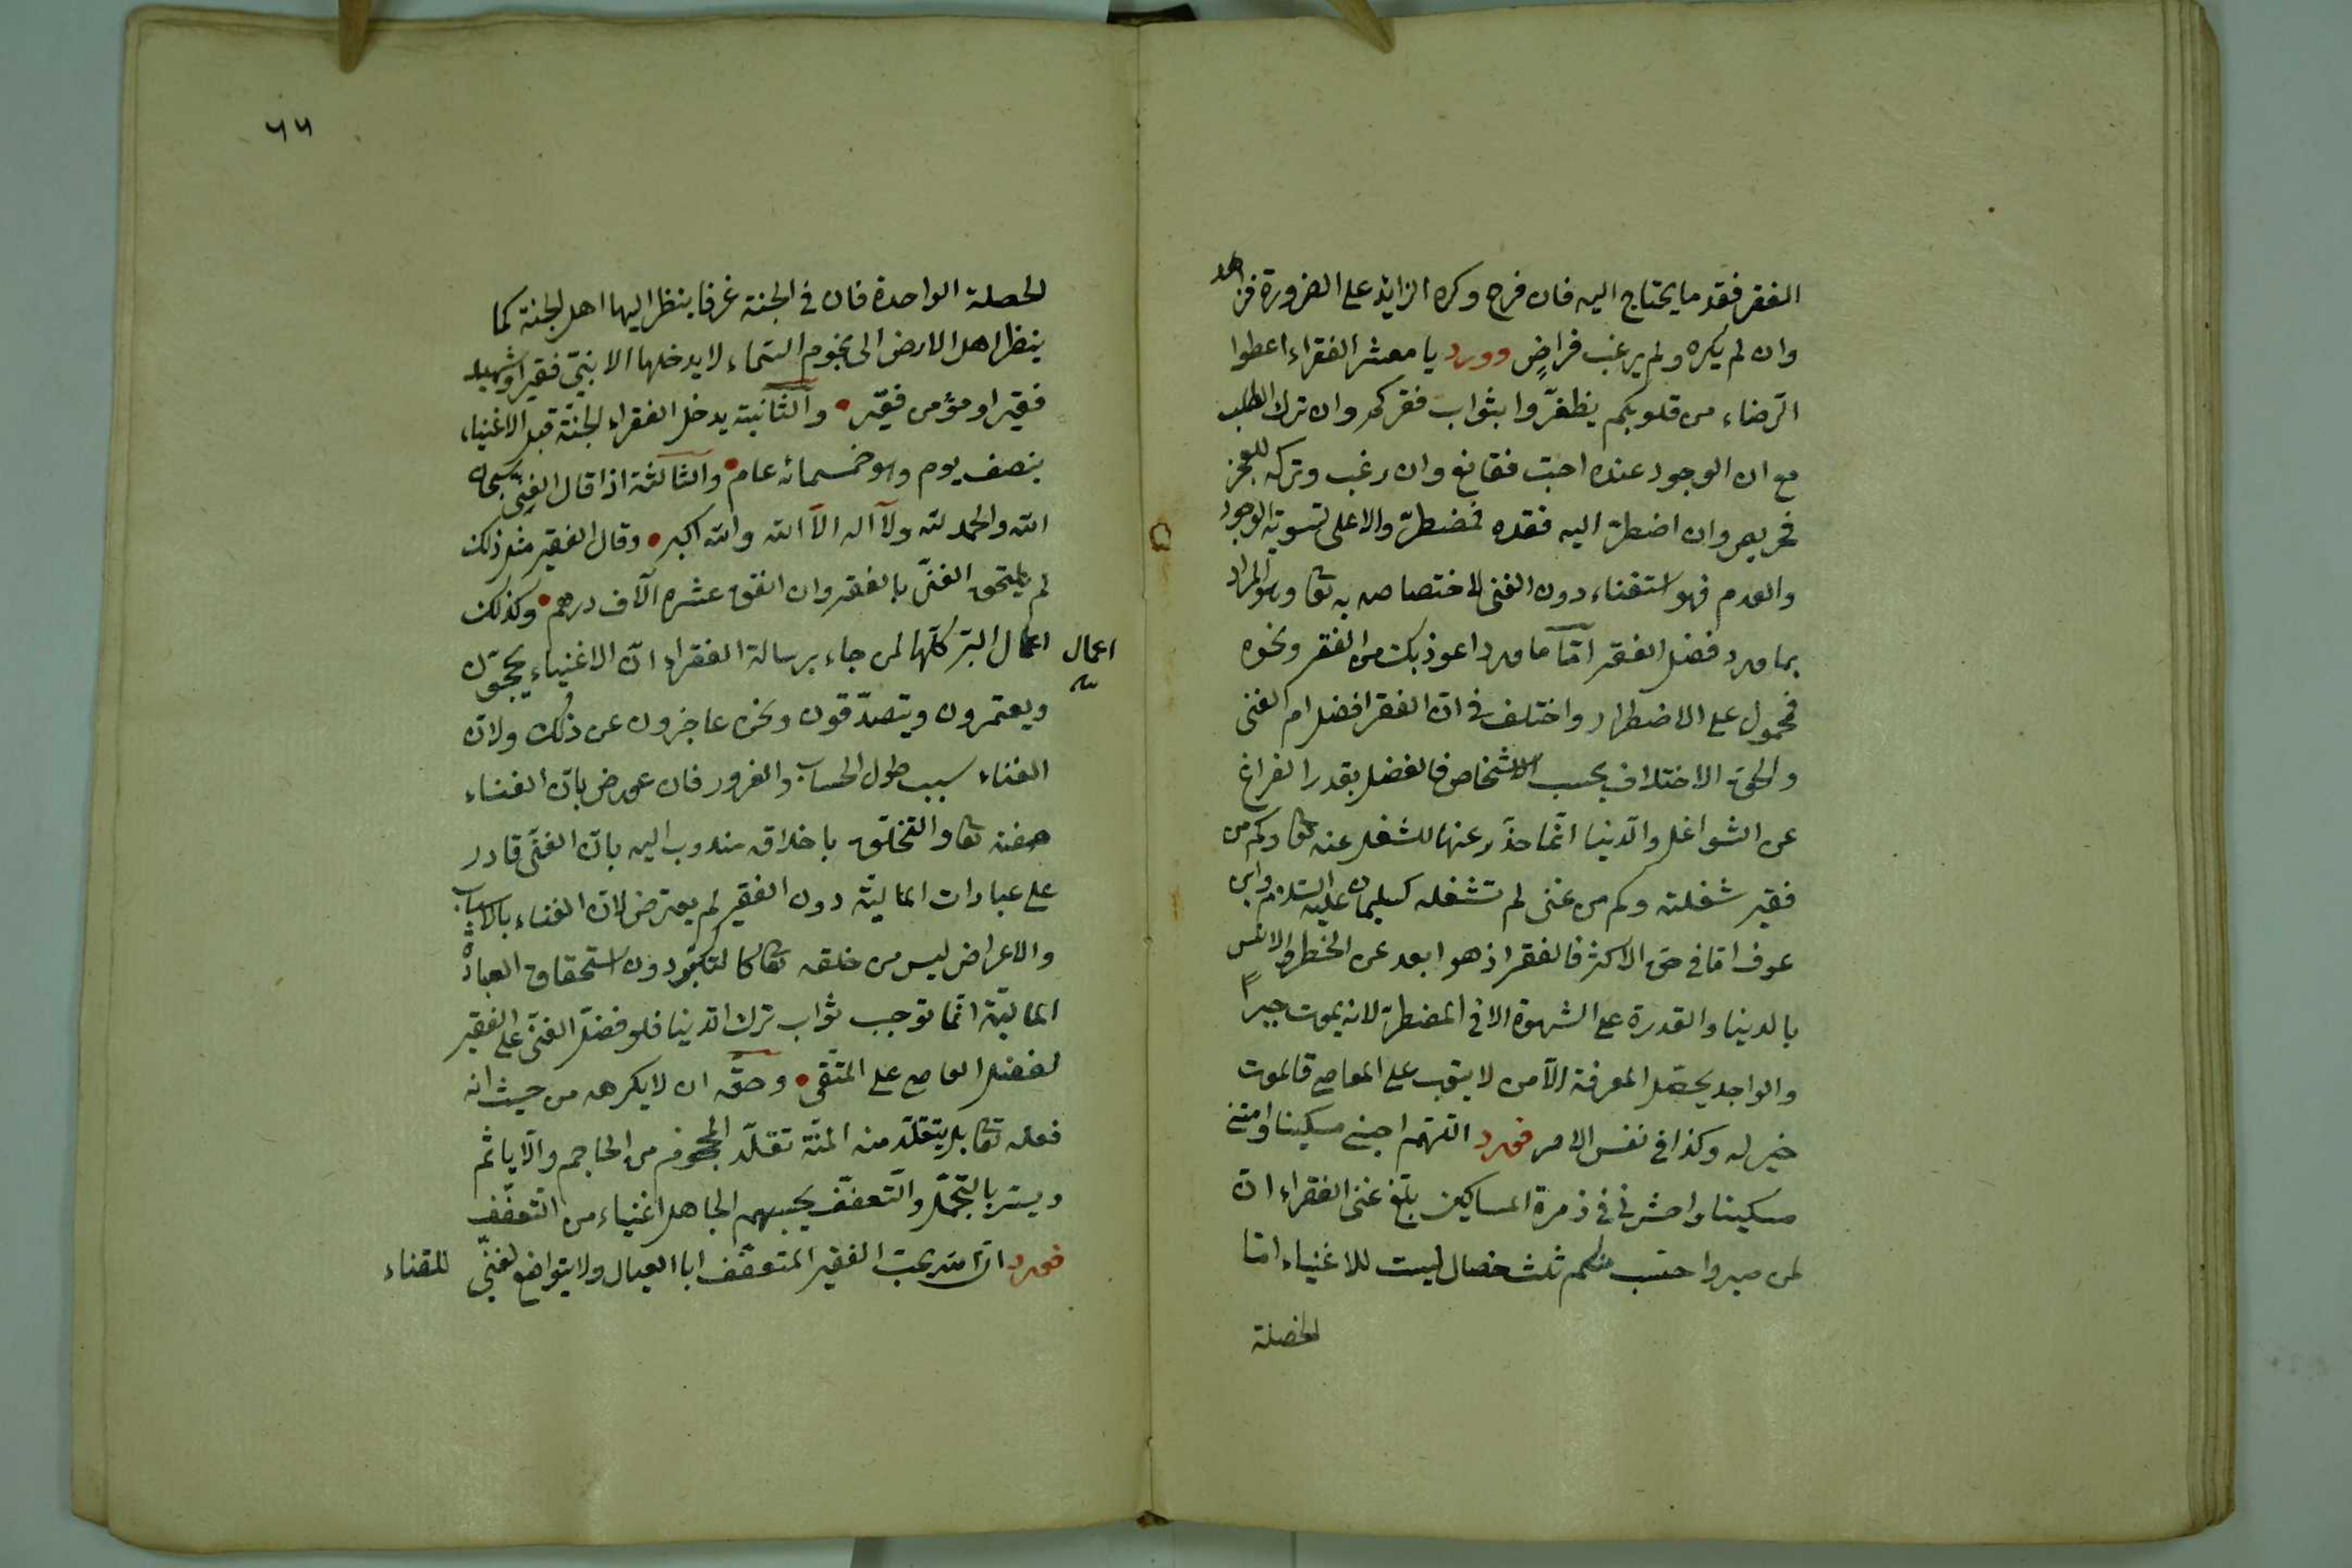 الفقر فقد ما يحتاج اليه فان فرح وكره الزايد على الضرورة فزاهد
وان لم يكره ولم يرغب فراضٍ وورد يا معشر الفقراء اعطوا
الرّضاء من قلوبكم يظفرّوا بثواب فقركم وان ترك الطلب
مع ان الوجود عنده احبّ فقانع وان رغب وتركه للعجز
فحريص وان اضطرّ اليه فقده فمضطرّ والاعلى تسوية الوجود
والعدم فهو استغناء دون الغنى لاختصاصه به تعا وهو المراد
بما ورد فضل الفقر امّا ما ورد اعوذ بك من الفقر ونحوه
فمحمول على الاضطرار واختلف في انّ الفقر افضل ام الغنى
والحق الاختلاف بحسب الاشخاص فالفضل بقدر الفراغ
عن الشواغل والدّنيا انّما حذّر عنها للشغل عنه تعا وكم من
فقير شغلته وكم من غنى لم تشغله كسليمان عليه السّلام وابن
عوف امّا في حق الاكثر فالفقر اذ هو ابعد عن الخطر والانس
بالدينا والقدرة على الشهوة الا في المضطرّ لانه يموت جبراً
والواجد يحصّل المعرفة الّا من لا يتوب على المعاصى فالموت
خير له وكذا في نفس الامر فورد اللّهم احينى مسكينا وامتنى
مسكينا واحشرنى في زمرة المساكين بلّغ عنى الفقراء انّ
لمن صبر واحتسب منكم ثلث خصال ليست للاغنياء امّا
الخصلة
٦٦
الخصلة الواحدة فان في الجنة غرفا ينظر اليها اهل الجنة كما
ينظر اهل الارض الى نجوم السّماء لا يدخلها الا نبىّ فقير او شهيد
فقير او مؤمن فقير والثّانية يدخل الفقراء الجنّة قبل الاغنياء
بنصف يوم وهو خمسمائه عام والثالثة اذا قال الغنىّ سبحان
الله والحمد لله ولا اله الّا الله والله اكبر وقال الفقير مثل ذلك
لم يلتحق الغنىّ بالفقر وان انفق عشره آلاف درهم وكذلك
اعمال البرّ كلّها لمن جاء برسالة الفقراء انّ الاغنياء يحجّون
اعمال
ويعتمرون ويتصدّقون ونحن عاجزون عن ذلك ولانّ
الغناء سبب طول الحساب والغرور فان عورض بانّ الغناء
صفته تعا والتخلّق باخلاقه مندوب اليه بانّ الغنّى قادر
على عبادات الماليّة دون الفقير لم يعترض لانّ الغناء بالاسباب
والاعراض ليس من خلقه تعا كالتكبّر دون استحقاق العبادة
الماليّة انّما توجب ثواب ترك الدّينا فلو فضّل الغنّى على الفقير
لفضل العاصى على المتّقى وحقّه ان لا يكرهه من حيث انه
فعله تعا بل يتقلّد منه المنّة تقلّد المحجوم من الحاجم والّا ياثم
ويستر بالتّجمّل والتّعفّف يحسبهم الجاهل اغنياء من التّعفّف
فورد انّ الله يحبّ الفقير المتعفّف ابا العيال ولا يتواضع لغنىّ
للغناء